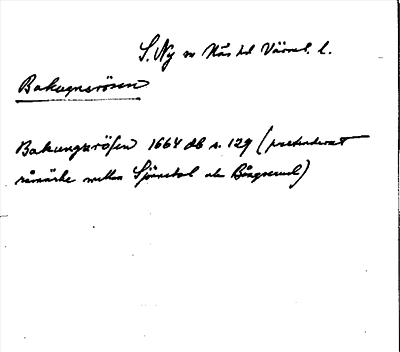 S. Ny sn Näs hd Värml. l.
Bakugnsrösen
Bakungzrösen 1664 db s. 129 (pretenderat
råmärke mellan Sjönebol och Bångserud)